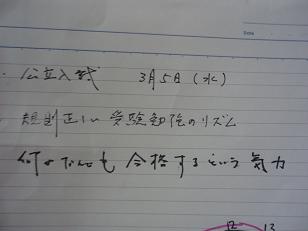 ・公立入試 3月5日(水)
規則正しい受験勉強のリズム
何がなんでも合格するという気力
Date
12 13